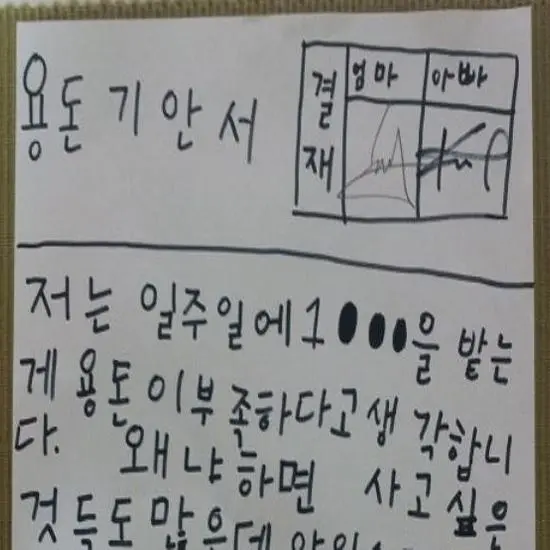 용돈기안서
결재
엄마 아빠
저는 일주일에 1000을 받는
게 용돈이부족하다고생각합니
다. 왜냐하면 사고싶은
것들도많은데